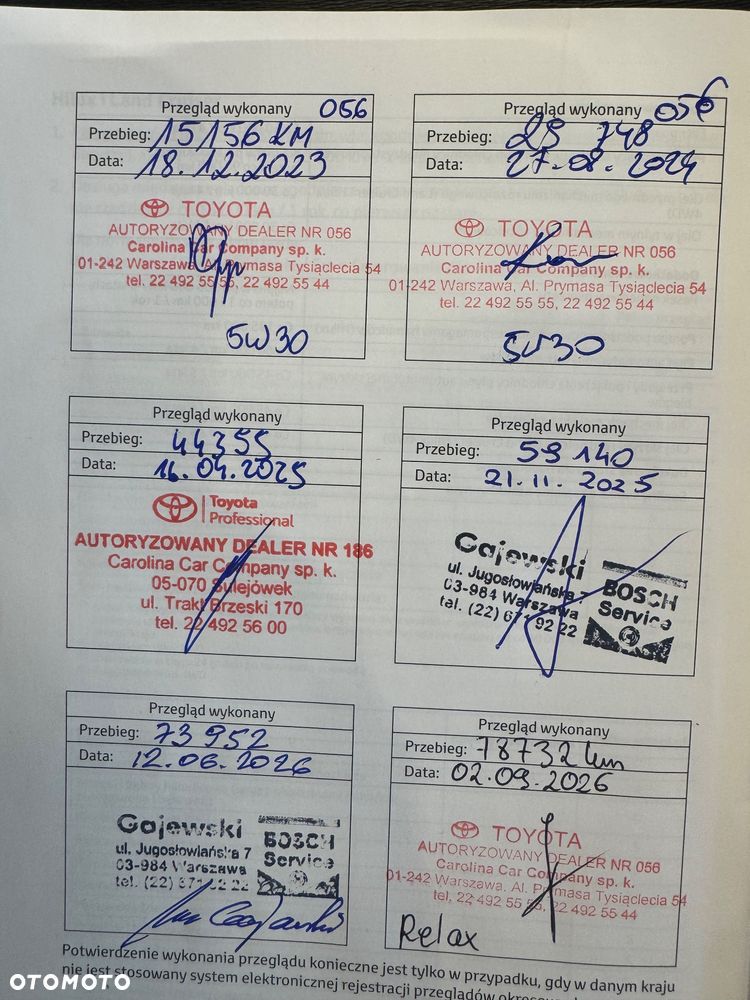 Przegląd wykonany 056
Przebieg: 15156 KM
Data: 18.12.2023
TOYOTA
AUTORYZOWANY DEALER NR 056
Carolina Car Company sp. k.
01-242 Warszawa, Al. Prymasa Tysiąclecia 54
tel. 22 492 55 55, 22 492 55 44
5W30
Przegląd wykonany 056
Przebieg: 29 748
Data: 27.08.2024
TOYOTA
AUTORYZOWANY DEALER NR 056
Carolina Car Company sp. k.
01-242 Warszawa, Al. Prymasa Tysiąclecia 54
tel. 22 492 55 55, 22 492 55 44
5W30
Przegląd wykonany
Przebieg: 44355
Data: 16.04.2025
Toyota
Professional
AUTORYZOWANY DEALER NR 186
Carolina Car Company sp. k.
05-070 Sulejówek
ul. Trakt Brzeski 170
tel. 22 492 56 00
Przegląd wykonany
Przebieg: 59 140
Data: 21.11.2025
Gajewski
ul. Jugosłowiańska 7
03-984 Warszawa
tel. (22) 671 92 22
BOSCH
Service
Przegląd wykonany
Przebieg: 73 952
Data: 12.06.2026
Gajewski
ul. Jugosłowiańska 7
03-984 Warszawa
tel. (22) 671 92 22
BOSCH
Service
Przegląd wykonany
Przebieg: 78732 km
Data: 02.09.2026
TOYOTA
AUTORYZOWANY DEALER NR 056
Carolina Car Company sp. k.
01-242 Warszawa, Al. Prymasa Tysiąclecia 54
tel. 22 492 55 55, 22 492 55 44
Relax
Potwierdzenie wykonania przeglądu konieczne jest tylko w przypadku, gdy w danym kraju
nie jest stosowany system elektronicznej rejestracji przeglądów
OTOMOTO